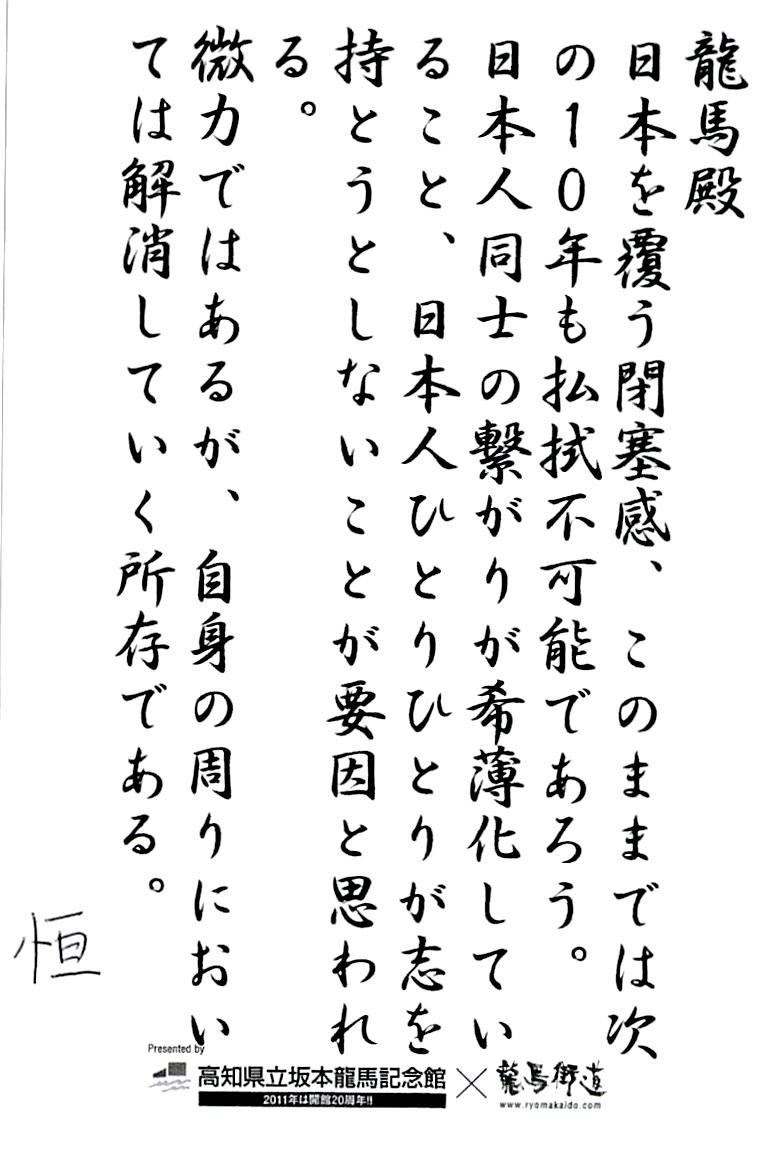 龍馬殿
日本を覆う閉塞感、このままでは次
の10年も払拭不可能であろう。
日本人同士の繋がりが希薄化してい
ること、日本人ひとりひとりが志を
持とうとしないことが要因と思われ
る。
微力ではあるが、自身の周りにおい
ては解消していく所存である。
恒
Presented by
高知県立坂本龍馬記念館
2011年は開館20周年!!
×
龍馬街道
www.ryomakaido.com